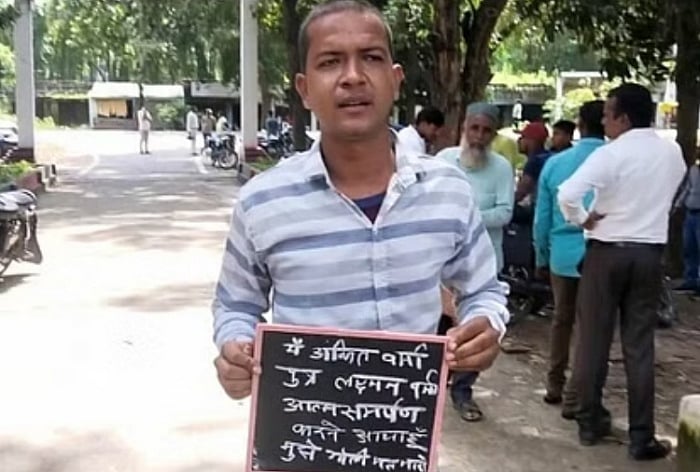 मैं अंकित वर्मा
पुत्र लक्ष्मन वर्मा
आत्म समर्पण
करने आयाहूँ
मुझे गोली मत मारो